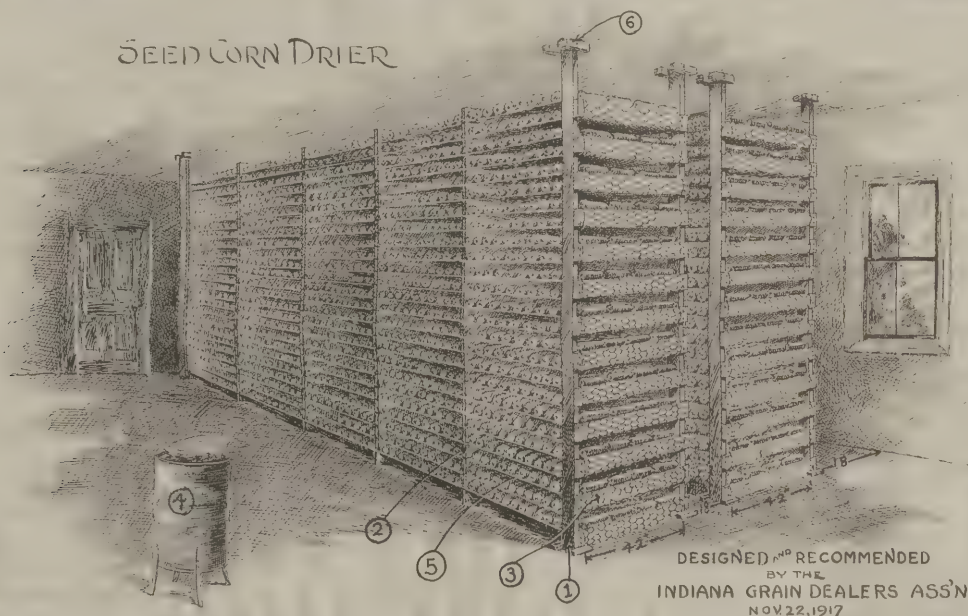 SEED CORN DRIER
6
4
2
5
3
1
42
18
42
18
DESIGNED AND RECOMMENDED
BY THE
INDIANA GRAIN DEALERS ASS'N
NOV. 22, 1917